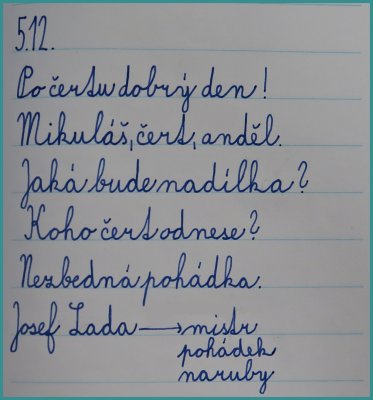 5.12.
Po čertu dobrý den!
Mikuláš, čert, anděl.
Jaká bude nadílka?
Koho čert odnese?
Nezbedná pohádka.
Josef Lada → mistr
pohádek
naruby